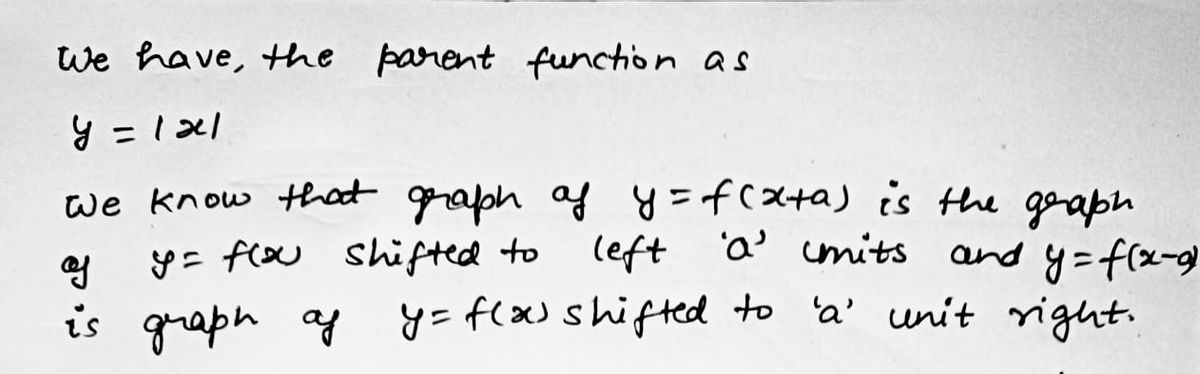 We have, the parent function as
y = |x|
We know that graph of y = f(x+a) is the graph
of y = f(x) shifted to left 'a' units and y = f(x-a)
is graph of y = f(x) shifted to 'a' unit right.